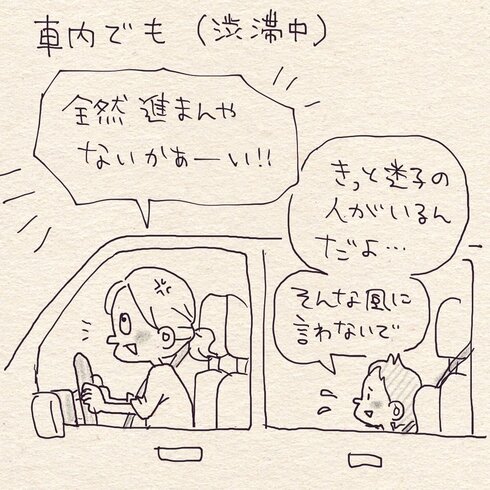 車内でも（渋滞中）
全然進まんや
ないかぁーい!!
きっと迷子の
人がいるん
だよ…
そんな風に
言わないで